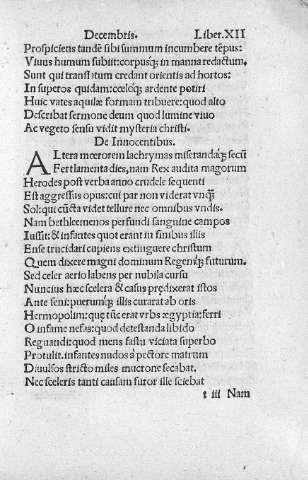 Decembris. Liber.XII
Prospiciens tandē sibi summum incumbere tēpus:
Viuus humum subiit: corpusq; in manna redactum.
Sunt qui transitum credant orientis ad hortos:
In superos quidam: cœloq; ardente potiri
Huic vates aquilæ formam tribuere: quod alto
Describat sermone deum quod lumine viuo
Ac vegeto sensu vidit mysteria christi.
De Innocentibus.
ALtera mœrorem lachrymas miserandaq; secū
Fert lamenta dies, nam Rex audita magorum
Herodes post verba anno crudele sequenti
Est aggressus opus: cui par non viderat vnq̄
Sol: qui cūcta videt tellure nec omnibus vndis.
Nam bethleemenos perfundi sanguine campos
Iussit: & infantes quot erant in finibus illis
Ense trucidari cupiens extinguere christum
Quem dixere magni dominum Regemq; futurum.
Sed celer aerio labens per nubila cursu
Nuncius hæc scelera & casus prędixerat istos
Ante seni: puerumq; illis curarat ab oris
Hermopolim: quę tūc erat vrbs ægyptia: ferri
O infame nefas: quod detestanda libido
Regnandi: quod mens fastu viciata superbo
Protulit. infantes nudos a pectore matrum
Diuulsos stricto miles mucrone secabat.
Nec sceleris tanti causam furor ille sciebat
t iii Nam